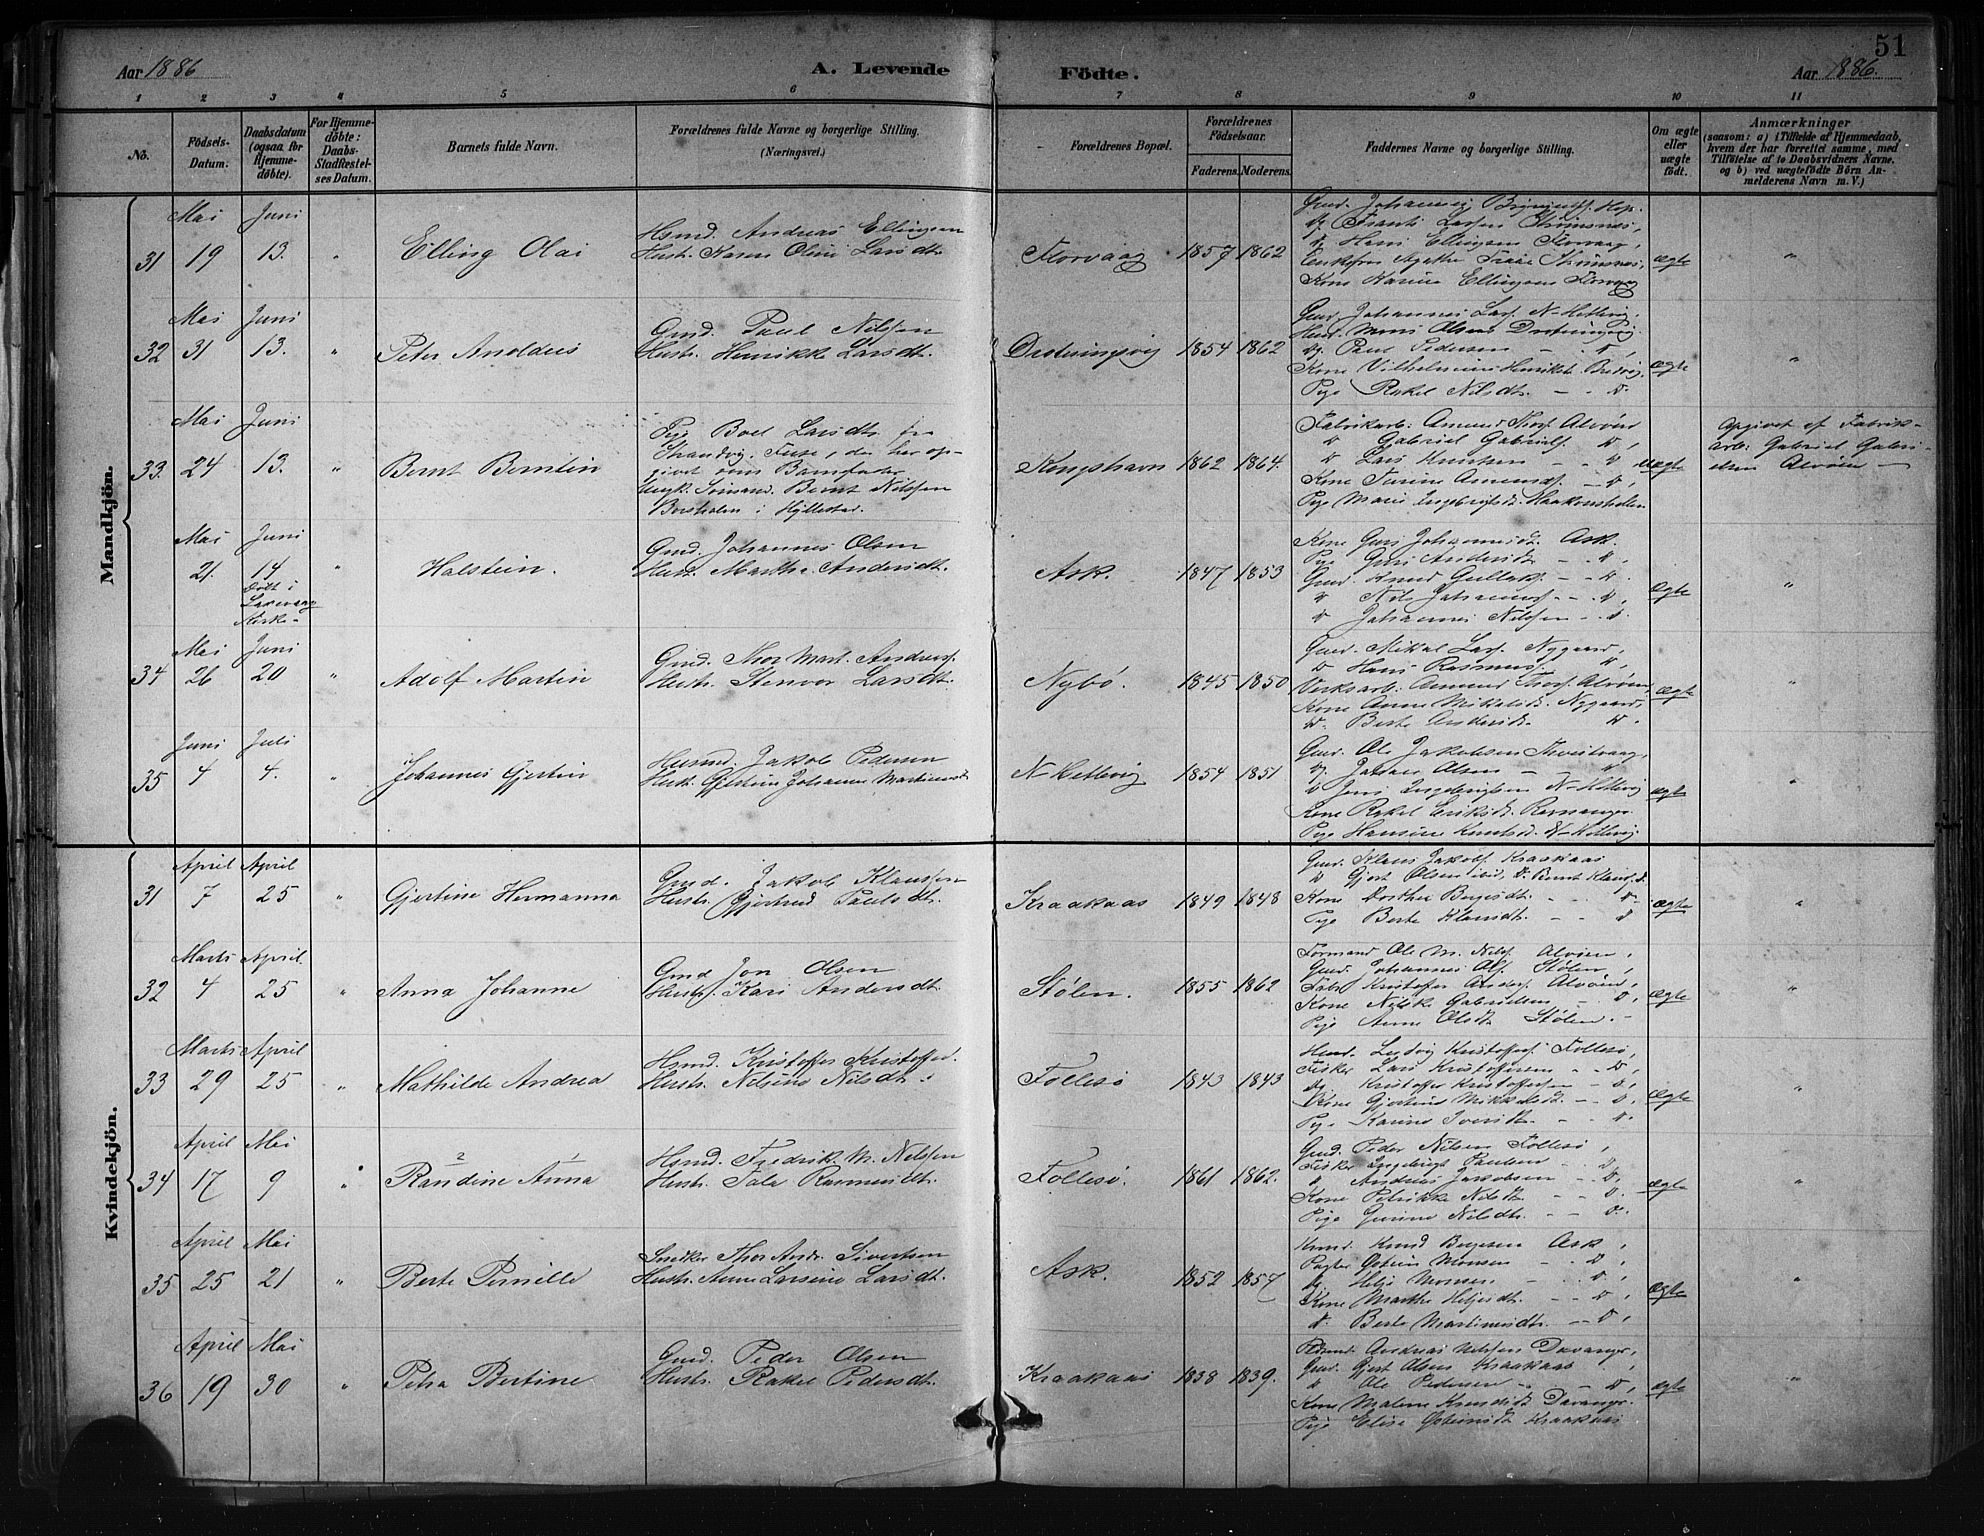 Aar 1886
A. Levende
Födte.
51
Aar 1886.
1 2 3 4 5 6 7 8 9 10 11
No.
Födsels-Datum.
Daabsdatum (ogsaa for Hjemme-döbte).
For Hjemme-döbte: Daabs-Stadfæstel-ses Datum.
Barnets fulde Navn.
Forældrenes fulde Navne og borgerlige Stilling.
(Næringsvei.)
Forældrenes Bopæl.
Forældrenes Födselsaar.
Faderens. Moderens.
Faddernes Navne og borgerlige Stilling.
Om ægte eller uægte födt.
Anmærkninger
(saasom: a) i Tilfælde af Hjemmedaab,
hvem der har forrettet samme, med
Tilföielse af to Daabsvidners Navne.
og b) ved uægtefödte Börn An-
melderens Navn m. V.)
Mandkjön.
31 Mai 19 Juni 13. " Elling Olai
Hsmd. Andreas Ellingsen
Hustr. Karen Oline Larsdtr.
Florvaag 1857 1862
Gmd. Johannes Hop.
Hans Ellingsen Florvaag,
Kone Karine Ellingsen Florvaag
ægte "
32 Mai 31 Juni 13. " Peter Anoldus
Gmd. Paul Nilsen
Hustr. Henrikke Larsdtr.
Drotningsvig 1854 1862
Gmd. Johannes Lars. N. Hetlevig,
Mons Olsen Drotningsvig
Paul Pedersen — D,
Kone Vilhelmine
Pige Rakel Nilsdtr. — D.
ægte "
33. Mai 24 Juni 13. " Bernt Berntin
Pige Boel Larsdtr. fra
Strandvig, Fuse, der har op-
givet som Barnefader
Ungk. Sömand Bernt Nilssen
i Hyllestad.
Kongshavn 1862 1864.
Fabrikarb. Amund Thors. Alvöen
D Gabriel Gabriels. D,
D Lars Knutsen — D
Kone Turine Amunds. — D,
Pige Marie
uægte
Opgivet af Fabrik-
arb. Gabriel Gabri-
elsen Alvöen —
Mai 21. Juni 14 " Halstein.
Döbt i
Laxevaag
Kirke—
Gmd. Johannes Olsen
Hustr. Marthe Andersdtr.
Ask. 1847 1853
Kone Guri Johannesdt. Ask.
Pige Guri Andersdt. — "
Gmd. Knud — D.
D Nils Johanness. — D,
D Johannes Nilssen — D.
Ægte "
34 Mai 26 Juni 20 " Adolf Martin
Gmd. Thor Mart. Anders.
Hustr. Stenvor Larsdtr.
Nybö. 1845 1850
Gmd. Mikal Lars. Nygaard,
D Hans Rasmus. ",
Verksarb. Amund Thors. Alvöen,
Kone Anne Mikalsdt. Nygaard,
D. Berte Andersdt. D.
Ægte "
35 Juni 4 Juli 4. " Johannes Gjertin
Husmd. Jakob Pedersen
Hustr. Gjertine Johanne Martinusdt
N Hetlevig 1854 1851
Gmd. Ole Jakobsen
Johan Olsen — "
D Jens Ingebrigtsen N Hetlevig
Kone Rakel Eriksdt.
Pige Hansine Knutsdt. N Hetlevig.
ægte "
Kvindekjön.
31 April 7 April 25 " Gjertine Hermanna
Gmd. Jakob Klaussen
Hustr. Gjertrud Paulsdtr.
Kraakaas 1849 1848
Gmd. Klaus Jakobs. Kraakaas
D Gjert Olsen ibid, D. Bernt Klaus. D.
Kone Dorthea — D.
Pige Berte Klausdt. D
Ægte "
32 Marts 4 April. 25 " Anna Johanne
Gmd Jon Olsen
Hustr. Kari Andersdtr.
Stölen. 1855 1862
Formand Ole M. Nils. Alvöen,
Gmd. Johannes Ols. Stölen,
Kristoffer Anders. Alvöen,
Kone Gabrielsen — D,
Pige Anne Olsdt. Stölen.
Ægte "
33 Marts 29 April 25 " Mathilde Andrea
Hsmd. Kristoffer Kristoffers.
Hustr. Nilsine Nilsdtr.
Follesö 1843 1843
Husmd. Ludvig Kristoffers. Follesö,
Fisker Lars Kristoffersen — D,
Kristoffer Kristoffersen — D,
Kone Gjertine Mikkelsdt. — D.
Pige Karine Iversdt. — D.
Ægte "
34 April 17 Mai 9 " Randine Anna
2 1
Hsmd. Fredrik M. Nilssen
Hustr. Tale Rasmusdtr.
Follesö. 1861 1862.
Gmd. Peder Nilsen Follesö,
Fisker Ingebrigt Paulsen — D
D Andreas Jakobsen — D,
Kone Petrikke Nilsdt. — D.
Pige Gurine Nilsdtr. — D.
ægte "
35 April 25 Mai 21 " Berte Pernille
Snedker Thor Andr. Sivertsen
Hustr. Anne Larsine Larsdt.
Ask. 1852 1857
Knud Ask,
Monsen — D,
Helje Monsen — D,
Kone Marthe Heljesdt. — D.
D. Berte Martinusdtr. — D,
Ægte "
36 April 19 Mai 30 " Petra Bertine
Gmd. Peder Olsen
Hustr. Rakel Pedersdtr.
Kraakaas 1838 1839.
Andreas Davanger,
Gmd. Gjert Olsen Kraakaas,
D Ole Pedersen — D,
Kone Malene Knudsdt. Davanger.
Pige Elise Kraakaas
ægte "